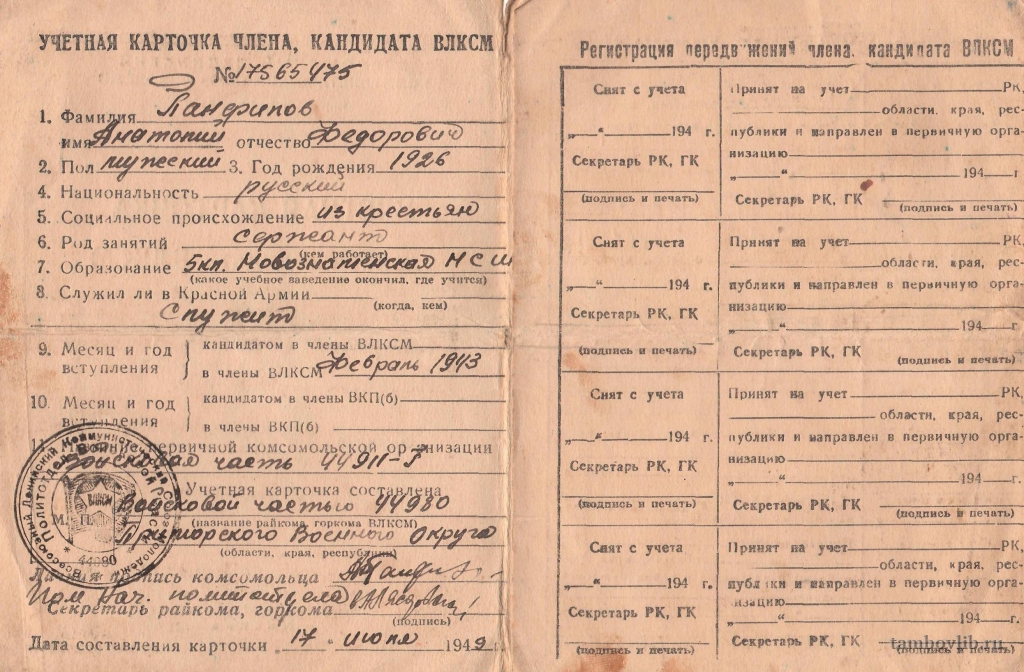 УЧЕТНАЯ КАРТОЧКА ЧЛЕНА, КАНДИДАТА ВЛКСМ
№ 17565475
1. Фамилия Панфилов
имя Анатолий отчество Федорович
2. Пол мужский 3. Год рождения 1926
4. Национальность русский
5. Социальное происхождение из крестьян
6. Род занятий сержант
(кем работает)
7. Образование 5кл. Новознаменская НСШ
(какое учебное заведение окончил, где учится)
8. Служил ли в Красной Армии
(когда, кем)
Служит
9. Месяц и год вступления
кандидатом в члены ВЛКСМ
в члены ВЛКСМ Февраль 1943
10. Месяц и год вступления
кандидатом в члены ВКП(б)
в члены ВКП(б)
11. первичной комсомольской организации
Войсковая часть 44911-
Учетная карточка составлена
М. П. Войсковой частью 44980
(название райкома, горкома ВЛКСМ)
Приморского Военного Округа
(области, края, республики)
подпись комсомольца
Пом Нач. политотдела
Секретарь райкома, горкома
(подпись)
Дата составления карточки "17" июля 1949 г
Всесоюзный Ленинский Коммунистический Союз Молодежи
Политотдел Войсковой
ВЛКСМ
* 44980 *
Регистрация передвижений члена, кандидата ВЛКСМ
Снят с учета
„ “ 194 г.
Секретарь РК, ГК
(подпись и печать)
Принят на учет РК,
области, края, рес-
публики и направлен в первичную орга-
низацию
„ “ 194 г
Секретарь РК, ГК
(подпись и печать)
Снят с учета
„ “ 194 г.
Секретарь РК, ГК
(подпись и печать)
Принят на учет РК,
области, края, рес-
публики и направлен в первичную орга-
низацию
„ “ 194 г.
Секретарь РК, ГК
(подпись и печать)
Снят с учета
„ “ 194 г.
Секретарь РК, ГК
(подпись и печать)
Принят на учет РК,
области, края, рес-
публики и направлен в первичную орга-
низацию
„ “ 194 г.
Секретарь РК, ГК
(подпись и печать)
Снят с учета
„ “ 194 г.
Секретарь РК, ГК
(подпись и печать)
Принят на учет РК,
области, края, рес-
публики и направлен в первичную орга-
низацию
„ “ 194 г.
Секретарь РК, ГК
(подпись и печать)
tambovlib.ru